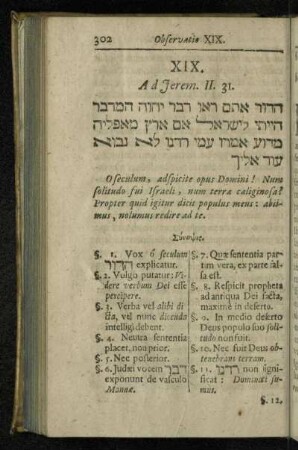 302 Observatio XIX.
XIX.
Ad Jerem. II. 31.
הדור אתם ראו דבר יהוה המדבר
הייתי לישראל אם ארץ מאפליה
מדוע אמרו עמי רדנו לא נבוא
עוד אליך
O seculum, adspicite opus Domini! Num
solitudo fui Israeli, num terra caliginosa?
Propter quid igitur dicit populus meus: abii-
mus, nolumus redire ad te.
Σύνοψις.
§. 1. Vox ô seculum
הדור explicatur.
§. 2. Vulgo putatur: Vi-
dere verbum Dei esse
percipere.
§. 3. Verba vel alibi di
cta, vel nunc dicenda
intelligi debent.
§. 4. Neutra sententia
placet, non prior.
§. 5. Nec posterior.
§. 6. Judæi vocem דבר
exponunt de vasculo
Mannæ.
§. 7. Quæ sententia par-
tim vera, ex parte fal-
sa est.
§. 8. Respicit propheta
ad antiqua Dei facta,
maxime in deserto.
§. 9. In medio deserto
Deus populo suo soli-
tudo non fuit.
§. 10. Nec fuit Deus ob-
tenebrans terram.
§. 11. רדנו non signi-
ficat: Dominati su-
mus.
§. 12.